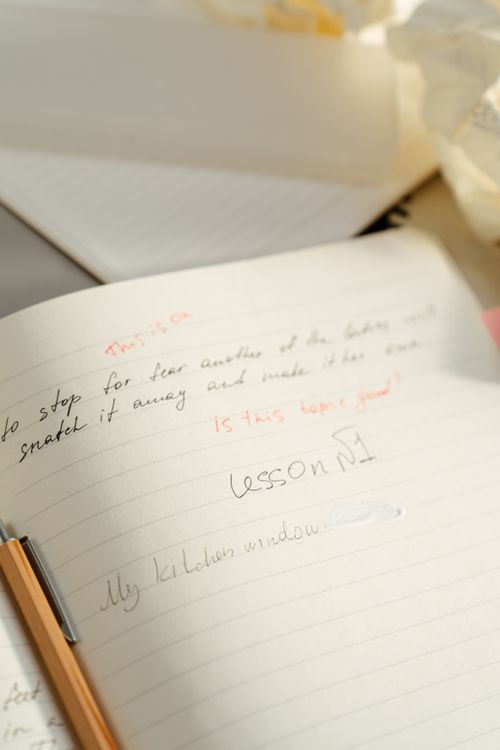 This is a
to stop for fear another of the ladies
snatch it away and make it her own
Is this topic good?
Lesson №1
My kitchen window
feet
in a